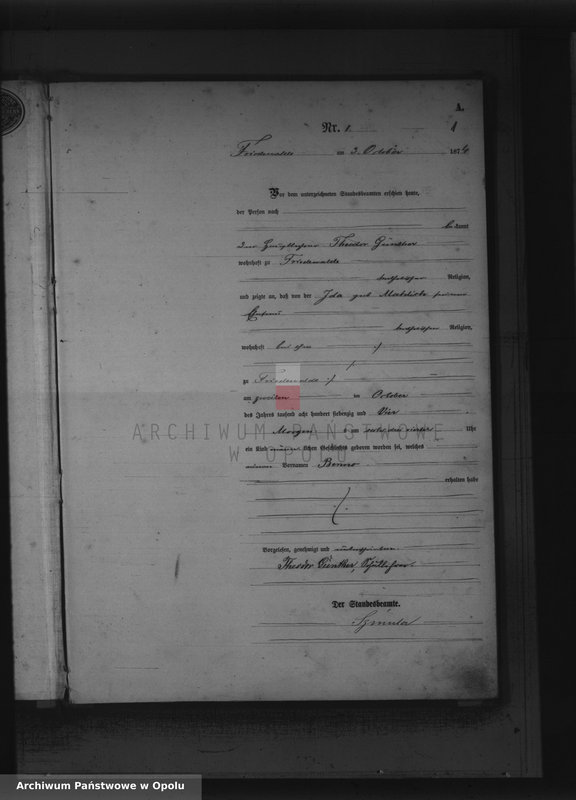 A.
Nr. 1.
1
Friedewalde am 3. October 1874
Vor dem unterzeichneten Standesbeamten erschien heute,
der Person nach
bekannt
der Hauptlehrer Theodor Günther
wohnhaft zu Friedewalde
katholischer Religion,
und zeigte an, daß von der Ida geb. seiner
Ehefrau
katholischer Religion,
wohnhaft bei ihm
zu Friedewalde
am zweiten im October
des Jahres tausend acht hundert siebenzig und Vier
Morgens um Uhr
ein Kind männlichen Geschlechts geboren worden sei, welches
Vornamen Benno
erhalten habe
Vorgelesen, genehmigt und unterschrieben.
Theodor Günther, Schullehrer.
Der Standesbeamte.
ARCHIWUM PAŃSTWOWE
W OPOLU
Archiwum Państwowe w Opolu